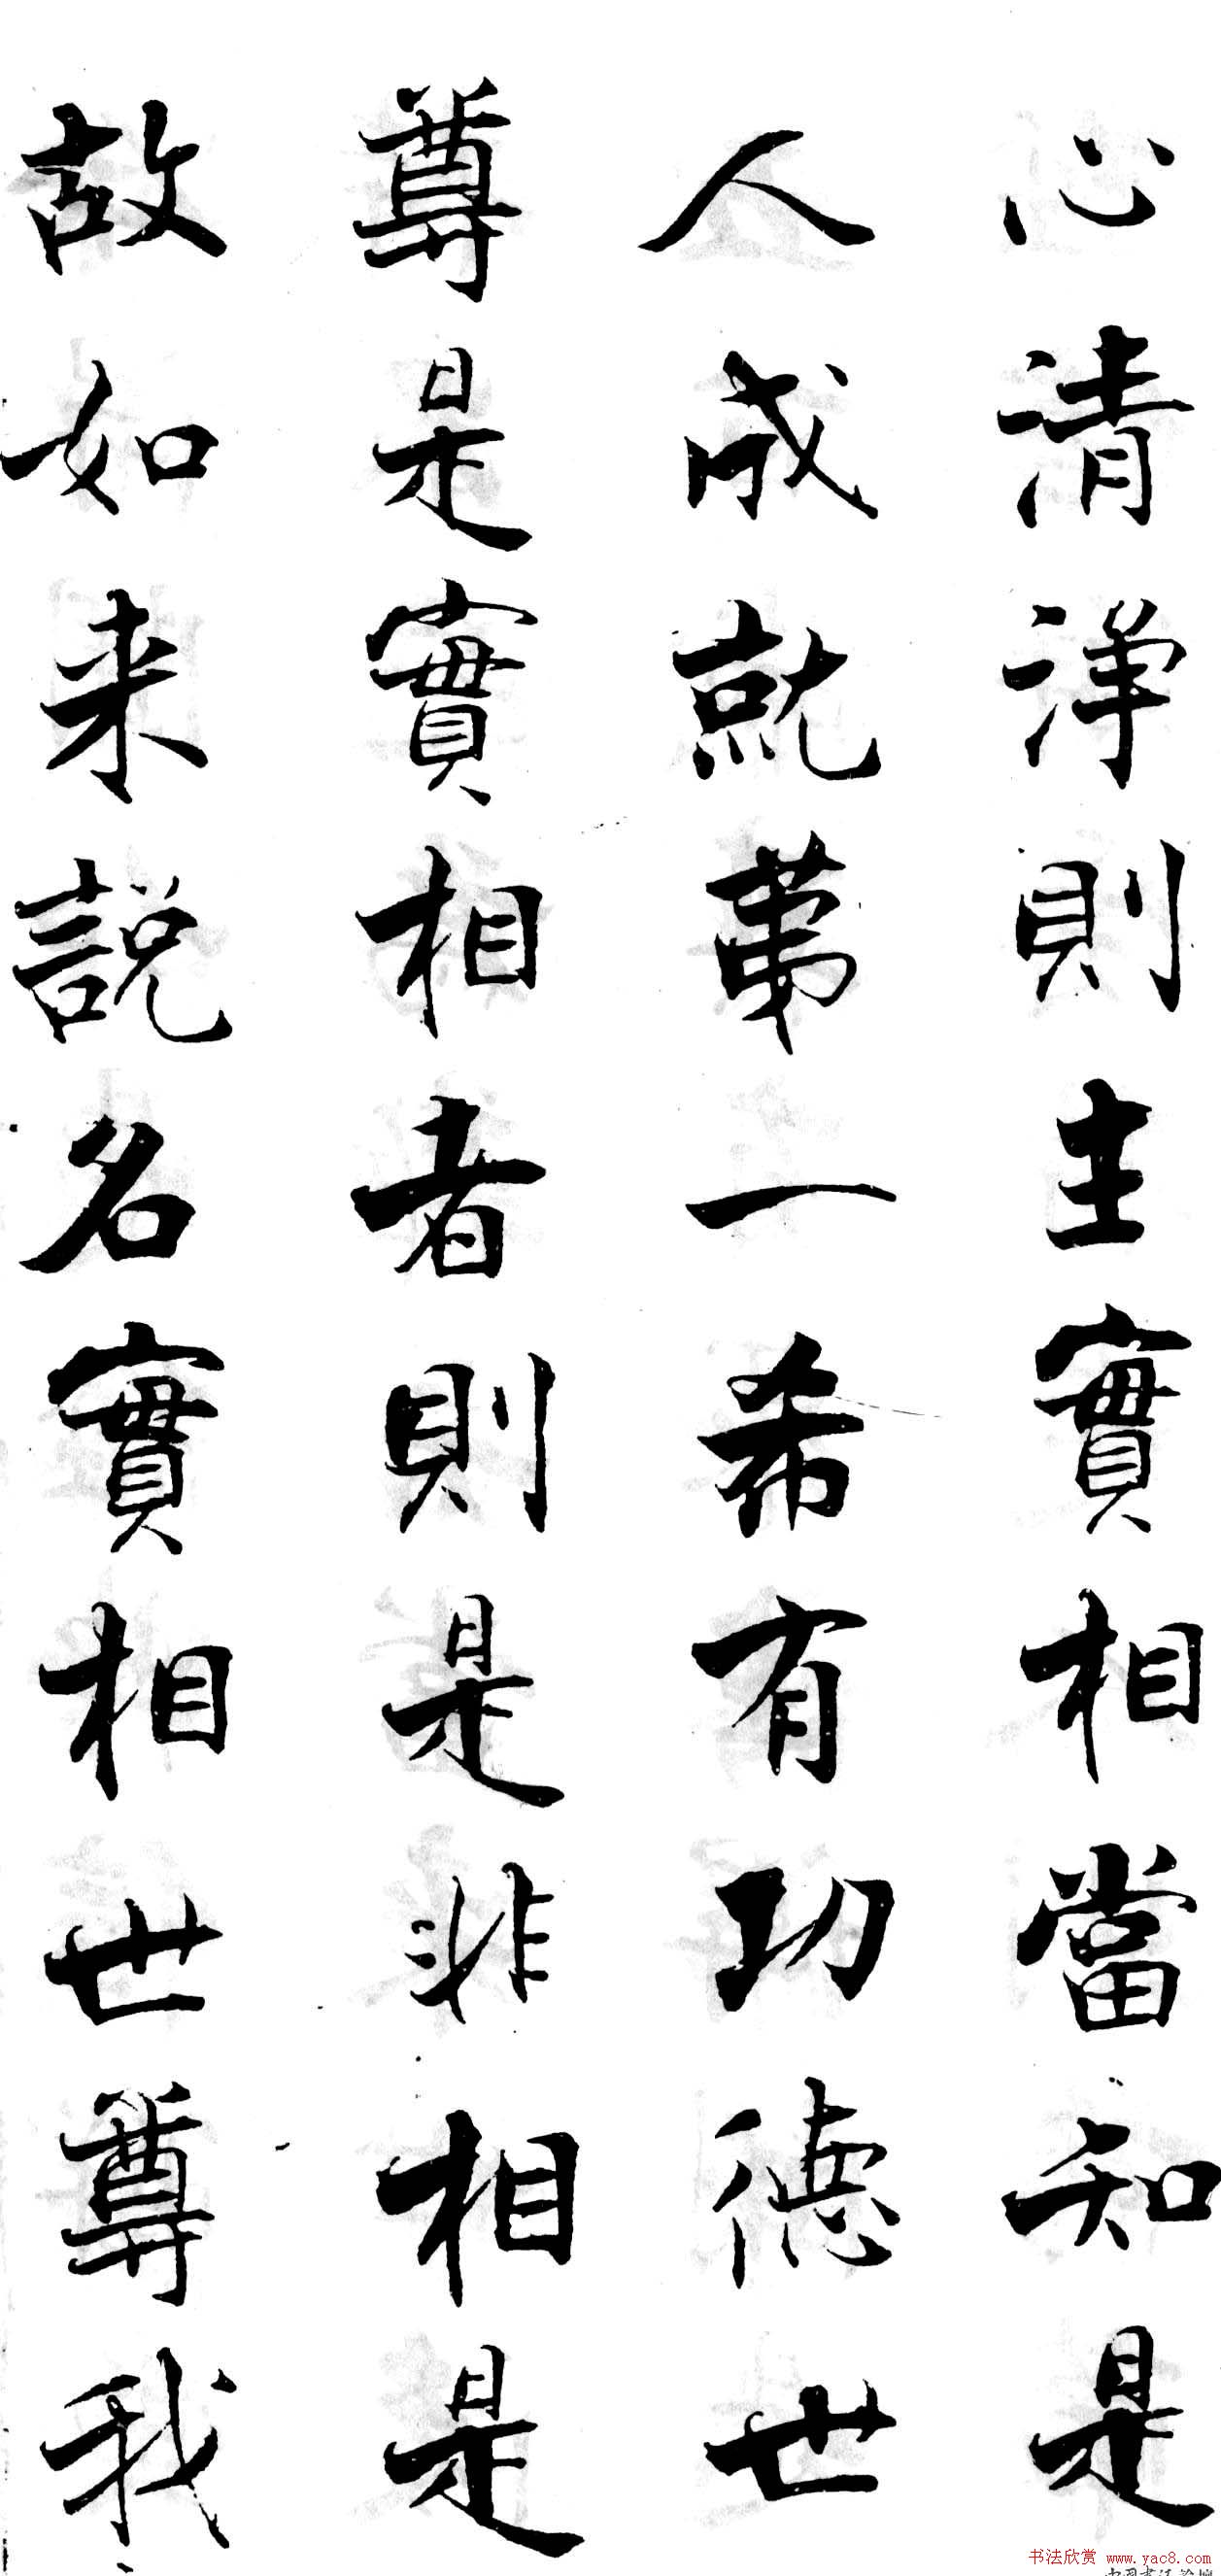 心清淨則生實相當知是
人成就苐一希有功德世
尊是實相者則是非相是
故如来說名實相世尊我
书法欣赏 www.yac8.com